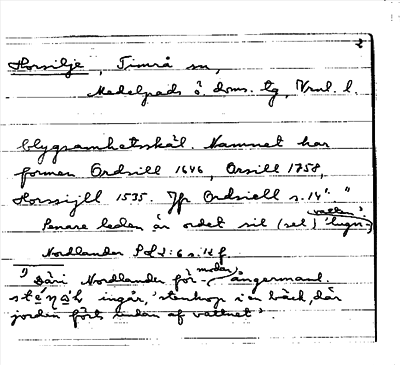 2
Horsilje, Timrå sn,
Medelpads ö. doms. tg, Vrnl. l.
blygsamhetsskäl. Namnet har
formen Ordsill 1646, Orsill 1758,
Horssijll 1535. Jfr Ordsiell s. 14". "
Senare leden är ordet sil (sel) 'lugn-
vatten'.
Nordlander 2:6 s. 12 f.
1) Däri Nordlander för-
modar, ångermanl.
ingår, 'stenhop i en bäck, där
jorden förts undan af vattnet'.